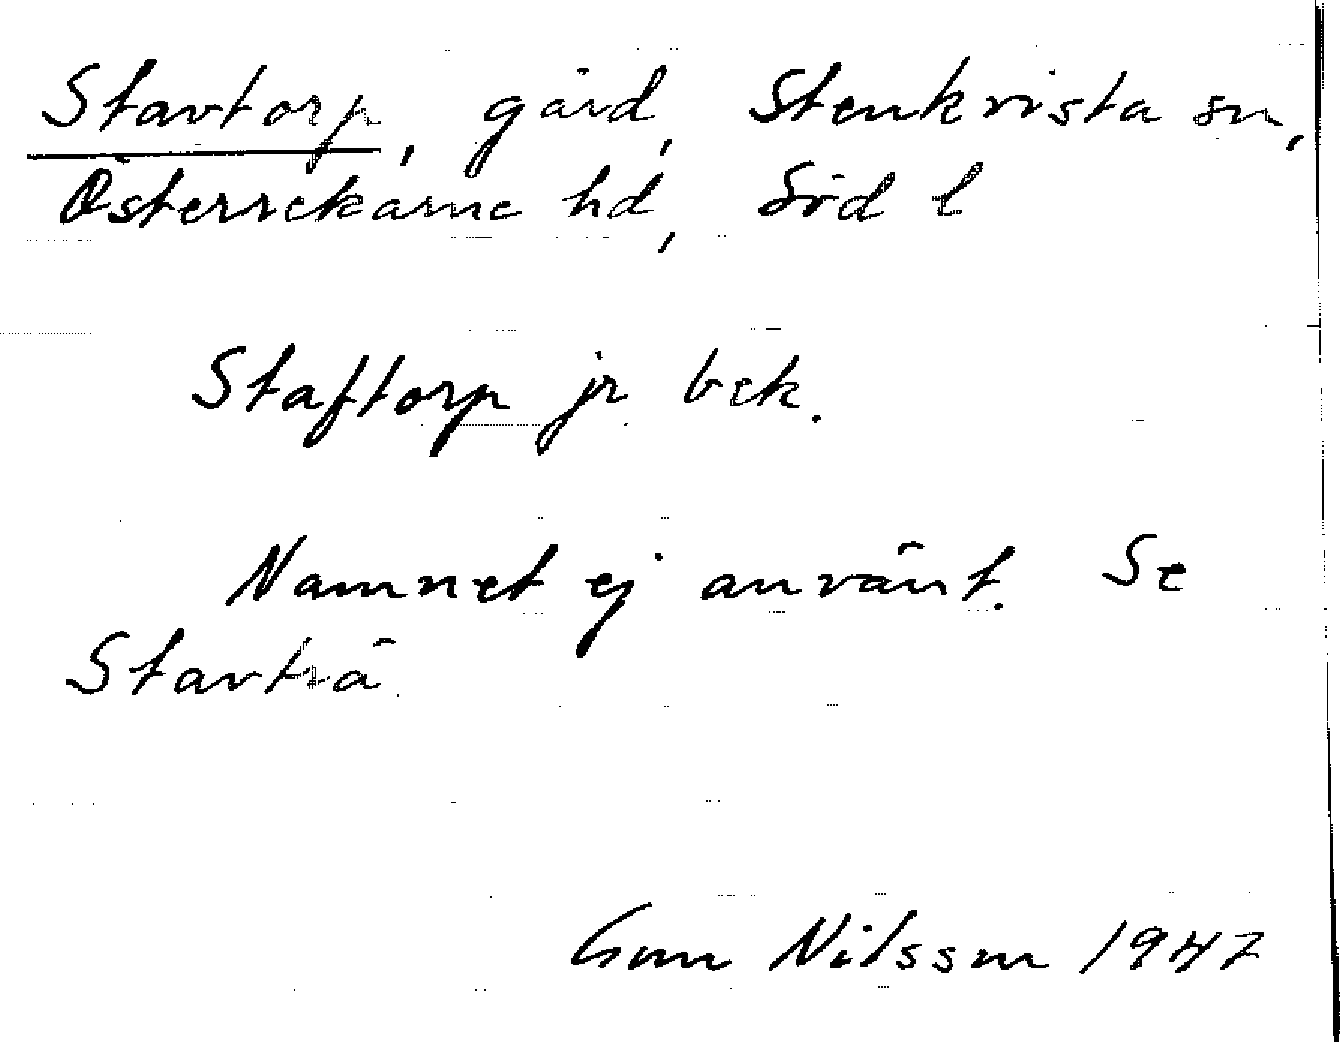 Stavtorp, gård, Stenkvista sn,
Österrekarne hd, Söd l
Staftorp jr bek.
Namnet ej använt. Se
Stavträ
Gun Nilsson 1947